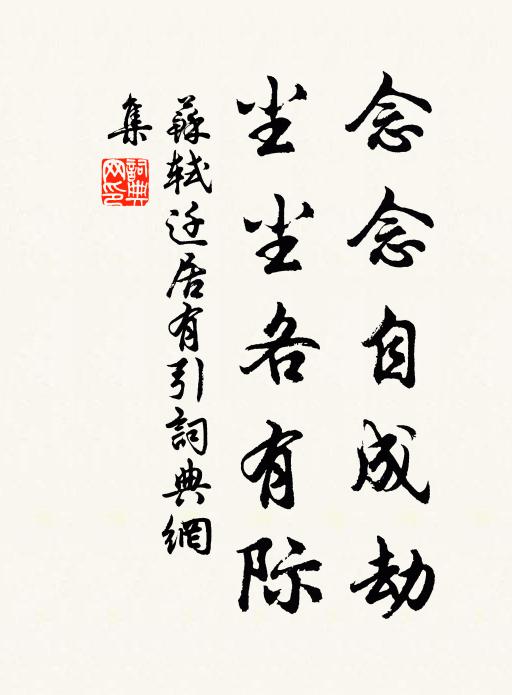 念念自成劫
尘尘各有际
蘇軾迁居有引詞典網
集
詞典
网印